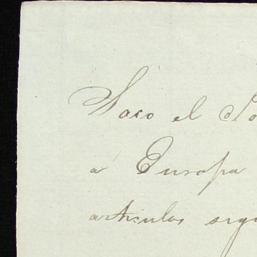 Saco el
á Europa
articulos